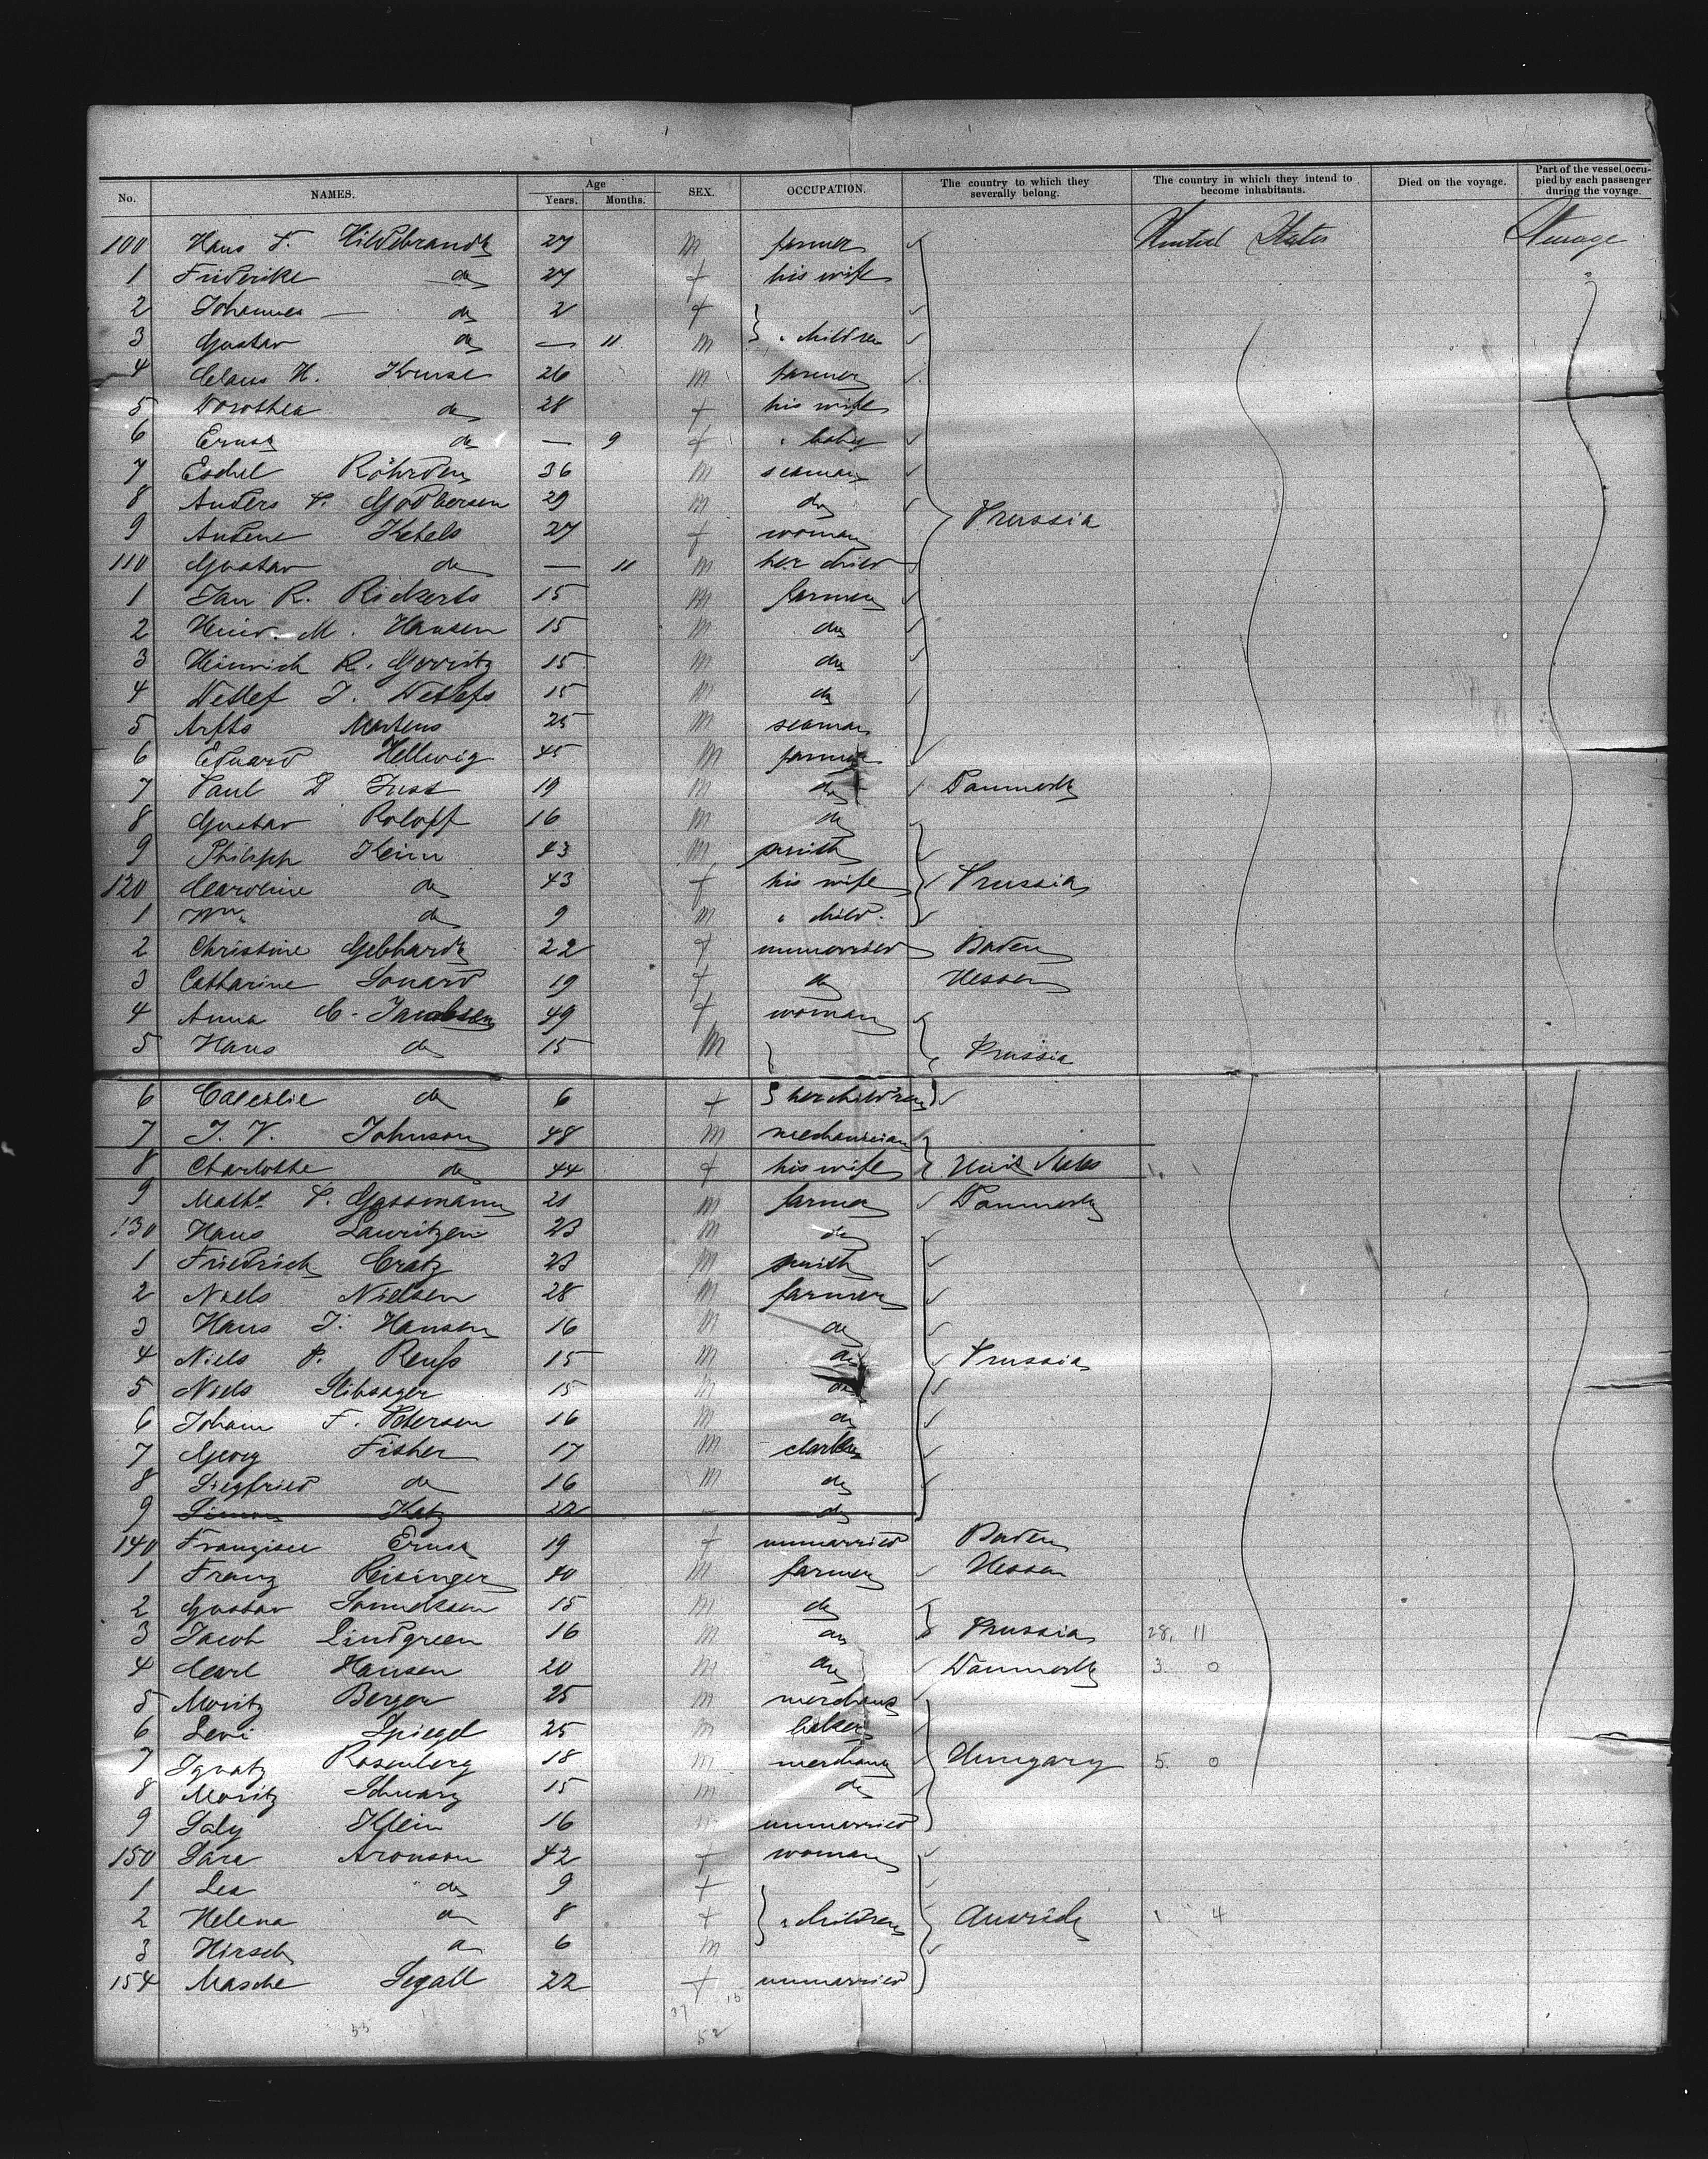 No. NAMES. Age Years. Months. SEX. OCCUPATION. The country to which they severally belong. The country in which they intend to become inhabitants. Died on the voyage. Part of the vessel occupied by each passenger during the voyage.
100 Hans F. Hildebrandt 27 m farmer United States Steerage
1 Friderike do 27 f his wife
2 Johannes — do 2 f
3 Gustav do — 11 m } " children
4 Claus H. Kruse 26 m farmer
5 Dorothea do 28 f his wife
6 Ernst do — 9 f " baby
7 Eschel Röhrden 36 m seaman
8 Anders P. Godbersen 29 m do Prussia
9 Andene Ketels 27 f woman
110 Gustav do — 11 m her child
1 Jan R. Rickerts 15 m farmer
2 Heinr. M. Hansen 15 m do
3 Heinrich R. Gerritz 15 m do
4 Detlef J. Detlefs 15 m do
5 Martens 25 m seaman
6 Eduard Hellwig 45 m farmer
7 Paul D Just 19 m do Danmark
8 Gustav Roloff 16 m do
9 Philipp Heim 43 m smith
120 Caroline do 43 f his wife Prussia
1 Wm. do 9 m " child.
2 Christine Gebhardt 22 f unmarried Baden
3 Catharine Lonard 19 f do Hessen
4 Anna C. Jacobsen 49 f woman
5 Hans do 15 m } Prussia
6 do 6 f } her children
7 J. V. Johnson 48 m mechanician
8 Charlotte do 44 f his wife Unit States 1. 1
9 Math. P. Gassmann 21 m farmer Danmark
130 Hans Lauritzen 23 m do
1 Friedrich Cratz 23 m smith
2 Niels Nielsen 28 m farmer
3 Hans J. Hansen 16 m do
4 Niels P. Reuss 15 m do Prussia
5 Niels Stibsager 15 m do
6 Johann F. Petersen 16 m do
7 Georg Fisher 17 m
8 Siegfried do 16 m do
9 Simon Katz 22 — do
140 Franzisca Ernst 19 f unmarried Baden
1 Franz Reisinger 40 m farmer Hessen
2 Gustav Samuelsen 15 m do
3 Jacob Lindgreen 16 m do Prussia 28. 11
4 Carl Hansen 20 m do Danmark 3. 0
5 Moritz Berger 25 m merchant
6 Levi Spiegel 25 m baker
7 Ignatz Rosenberg 18 m merchant Hungary 5. 0
8 Moritz Schwarz 15 m do
9 Saly Klein 16 m unmarried
150 Sara Aronson 42 f woman
1 Lea do 9 f
2 Helena do 8 f } " children 1. 4
3 Hirsch do 6 m
154 Masche Segall 22 f unmarried
55 37 15
52